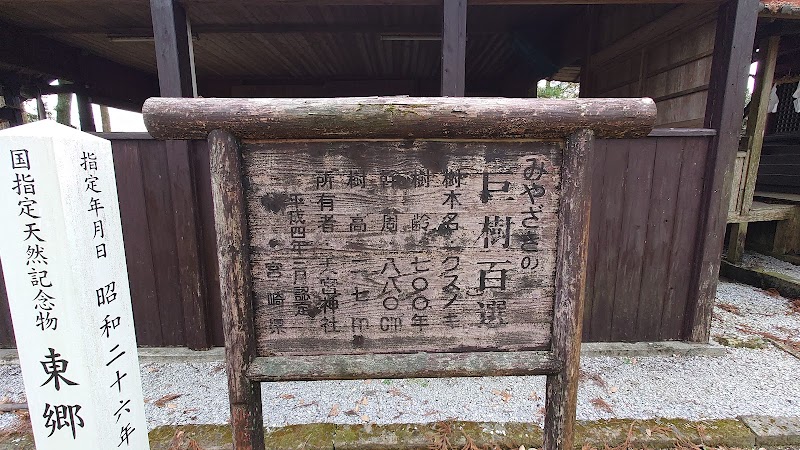 みやざきの
巨樹百選
樹木名 クスノキ
樹齢 七〇〇年
幹周 八八〇cm
樹高 二七m
所有者 天宮神社
平成四年三月認定
宮崎県
指定年月日 昭和二十六年
国指定天然記念物 東郷